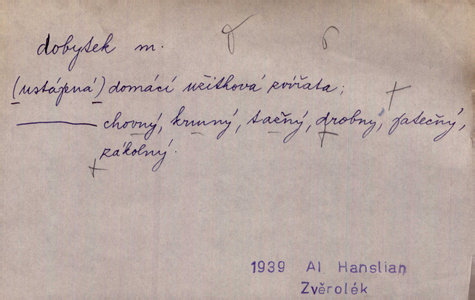 dobytek m.
(ustájená) domácí užitková zvířata;
chovný, krmný, tažný, drobný, jatečný,
zákolný.
1939 Al Hanslian
Zvěrolék